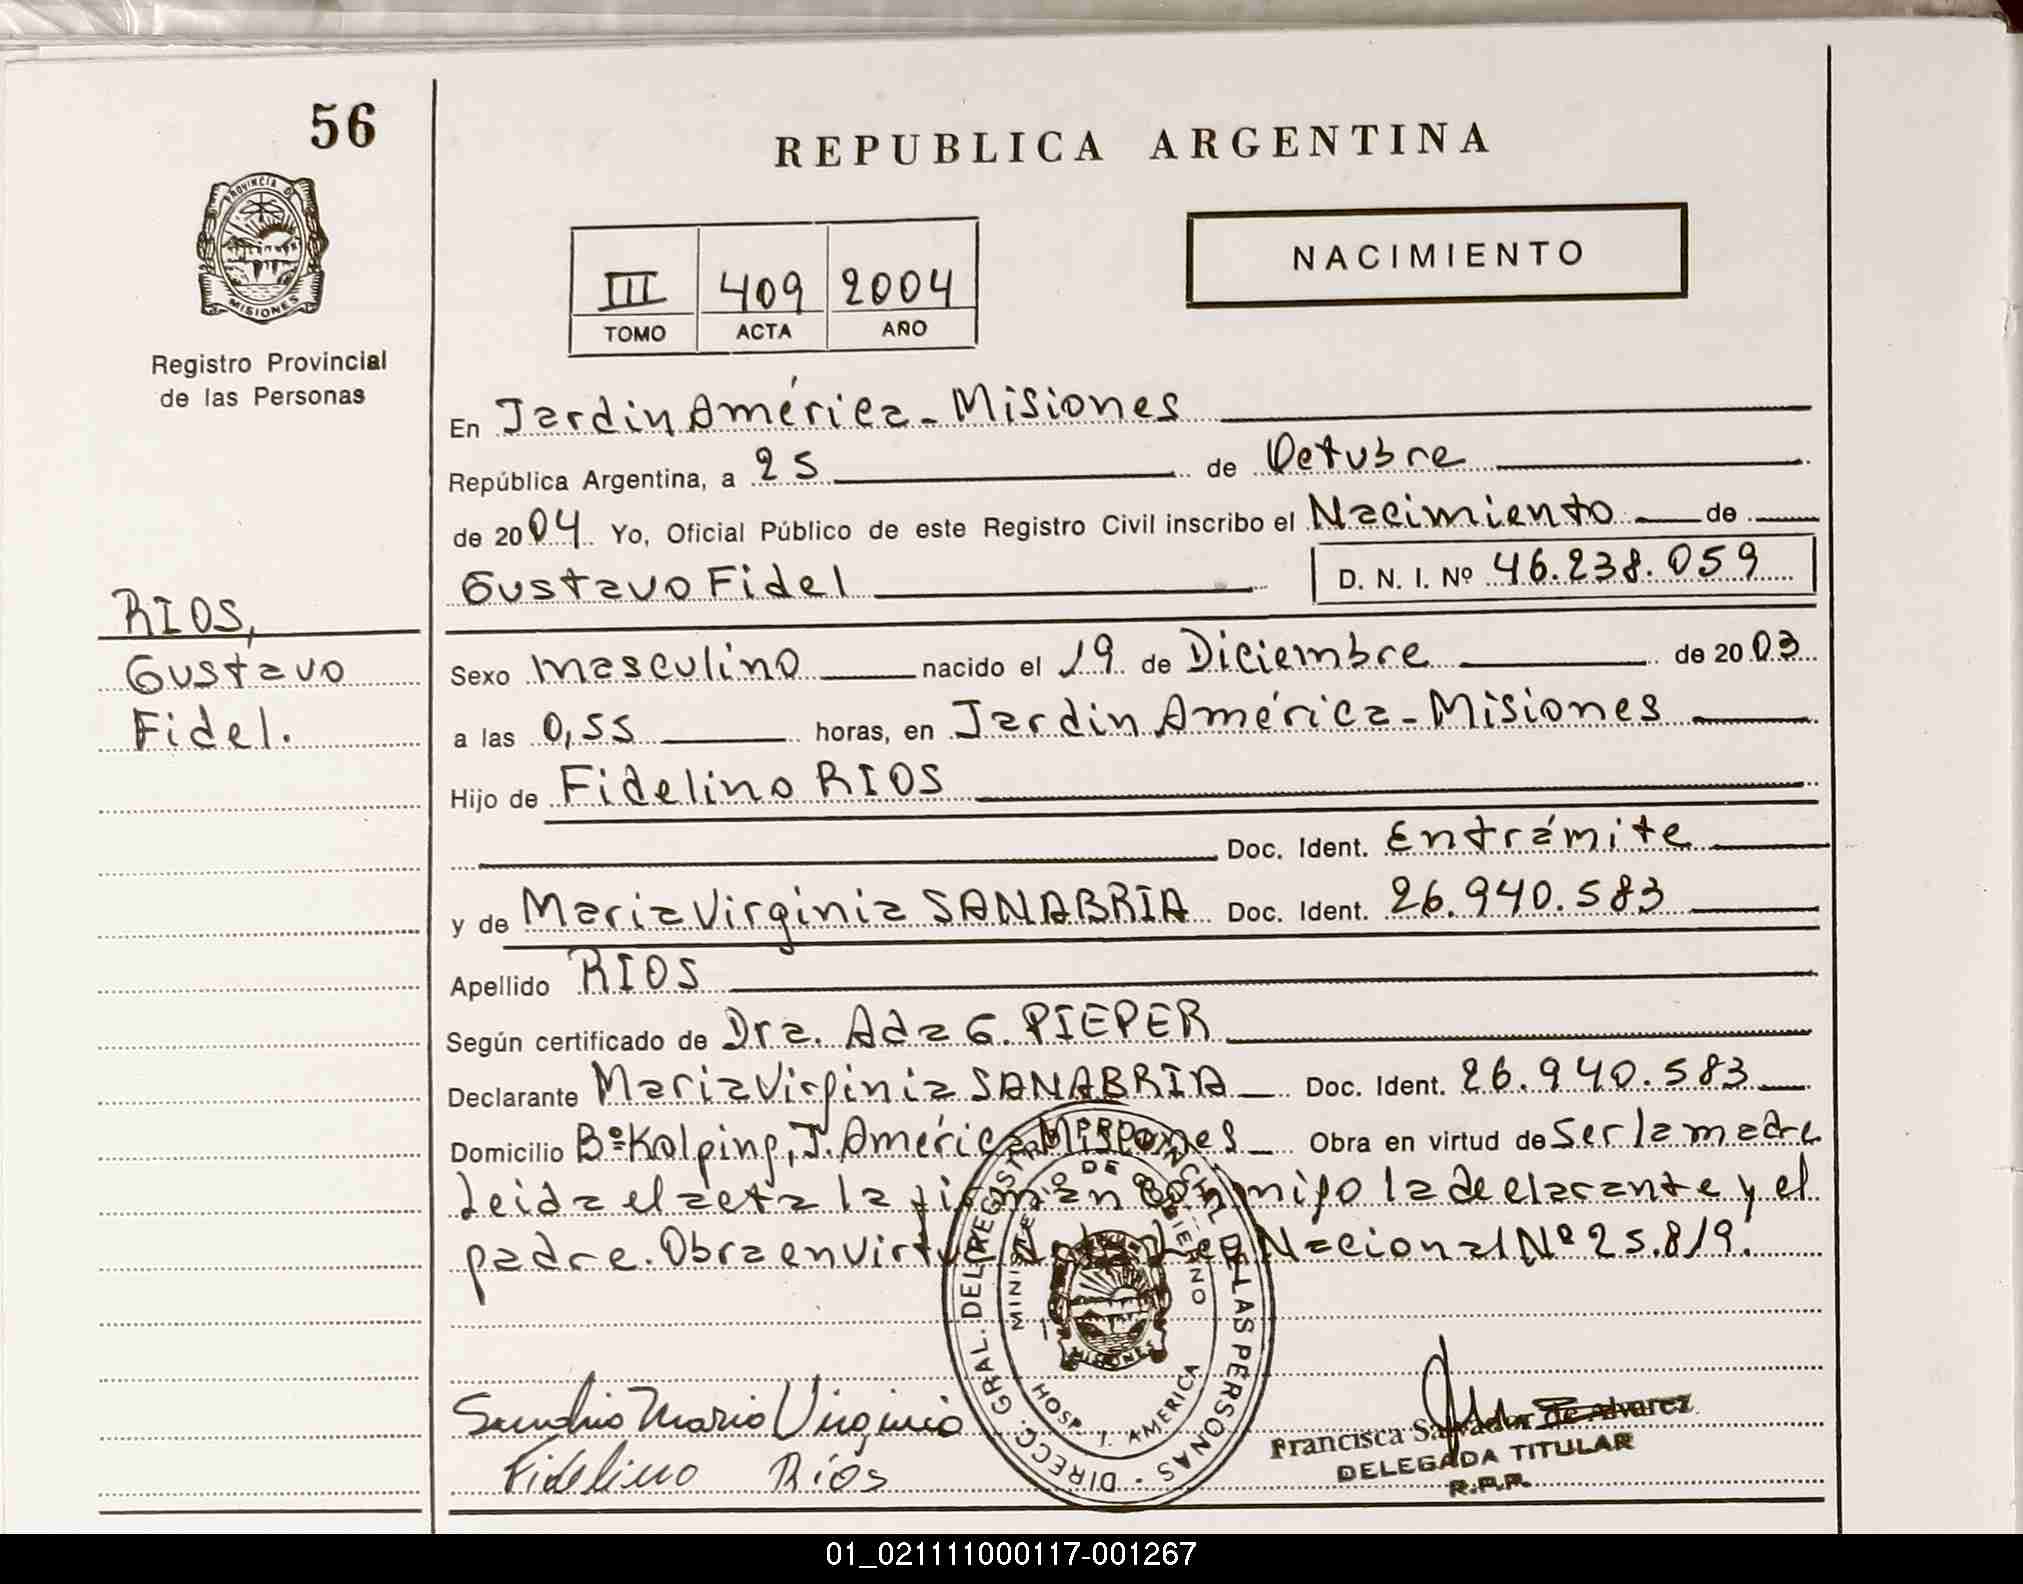 56
REPUBLICA ARGENTINA
PROVINCIA DE
MISIONES
Registro Provincial
de las Personas
NACIMIENTO
III 409 2004
TOMO ACTA AÑO
En Jardin América - Misiones
República Argentina, a 25 de Octubre
de 2004 Yo, Oficial Público de este Registro Civil inscribo el Nacimiento de
Gustavo Fidel D. N. I. Nº 46.238.059
RIOS,
Gustavo
Fidel.
Sexo masculino nacido el 19 de Diciembre de 2003
a las 0,55 horas, en Jardin América - Misiones
Hijo de Fidelino RIOS
Doc. Ident. En trámite
y de Maria Virginia SANABRIA Doc. Ident. 26.940.583
Apellido RIOS
Según certificado de Dra. Ada G. PIEPER
Declarante Maria Virginia SANABRIA Doc. Ident. 26.940.583
Domicilio Bº Kolping, J. América Misiones Obra en virtud de ser la madre
Leida el acta la firman conmigo la declarante y el
padre. Obra en virtud de la Ley Nacional Nº 25.819.
DIRECC. GRAL. DEL REGISTRO PROVINCIAL DE LAS PERSONAS
MINISTERIO DE GOBIERNO
MISIONES
HOSP. J. AMERICA
Sanabria Maria Virginia
Fidelino Ríos
Francisca Salvador de Alvarez
DELEGADA TITULAR
R.P.P.
01_021111000117-001267